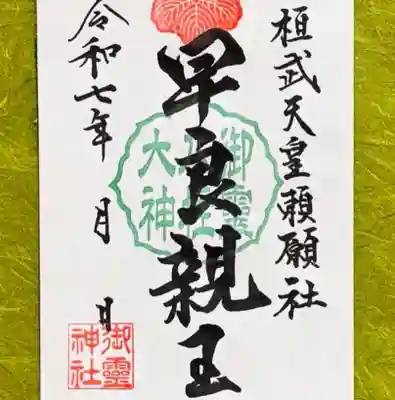 桓武天皇頼願社
早良親王
令和七年 月 日
御霊
大神
御靈
神社